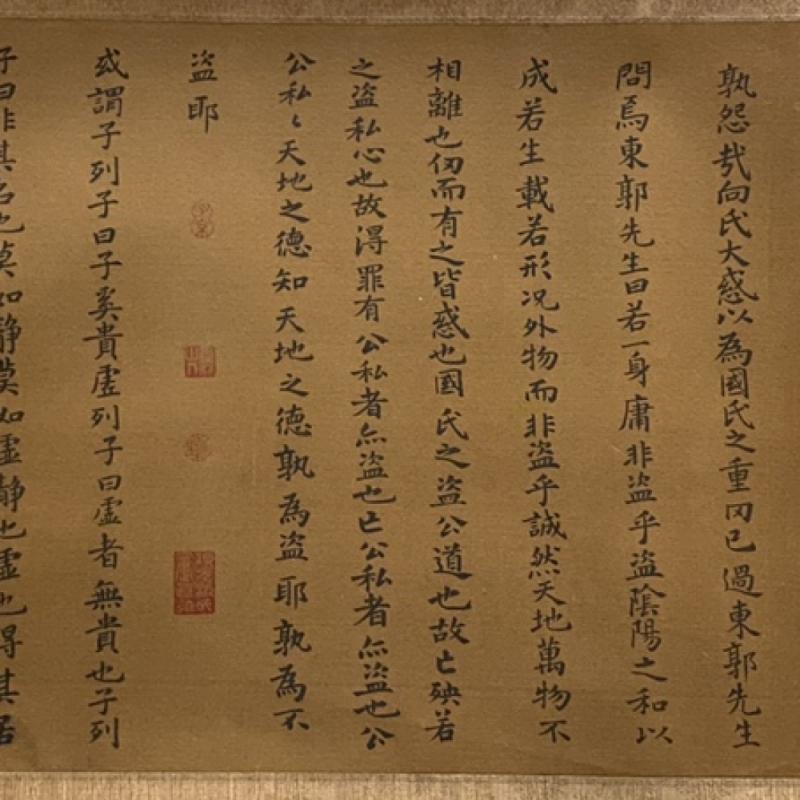 孰怨哉向氏大惑以為國氏之重罔已過東郭先生
問焉東郭先生曰若一身庸非盜乎盜陰陽之和以
成若生載若形況外物而非盜乎誠然天地萬物不
相離也仞而有之皆惑也國氏之盜公道也故亡殃若
之盜私心也故得罪有公私者亦盜也亡公私者亦盜也公
公私〻天地之德知天地之德孰為盜耶孰為不
盜耶
或謂子列子曰子奚貴虛列子曰虛者無貴也子列
子曰非其名也莫如靜莫如虛靜也虛也得其居